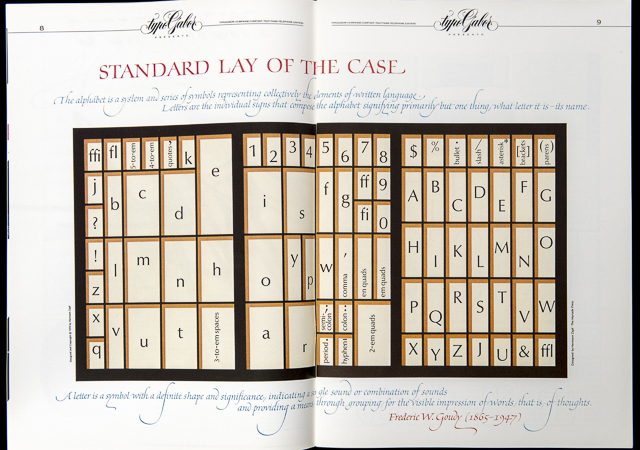 8
typoGabor
PRESENTS
typoGabor
PRESENTS
9
STANDARD LAY OF THE CASE
The alphabet is a system and series of symbols representing collectively the elements of written language.
Letters are the individual signs that compose the alphabet signifying primarily but one thing, what letter it is—its name.
ffi fl 5-to-em 4-to-em quotes' k
j b c d e
?
! l m n h
z
x v u t 3-to-em spaces
q
1 2 3 4 5 6 7 8
i s f g ff 9
fi 0
o y p w , comma en quads em quads
a r semi-colon ; colon : 2-em quads
period . hyphen
$ % bullet • slash / asterisk * brackets [] (parens)
A B C D E F G
H I K L M N O
P Q R S T V W
X Y Z J U & ffl
A letter is a symbol with a definite shape and significance, indicating a single sound or combination of sounds
and providing a means, through grouping, for the visible impression of words, that is, of thoughts.
Frederic W. Goudy (1865–1947)